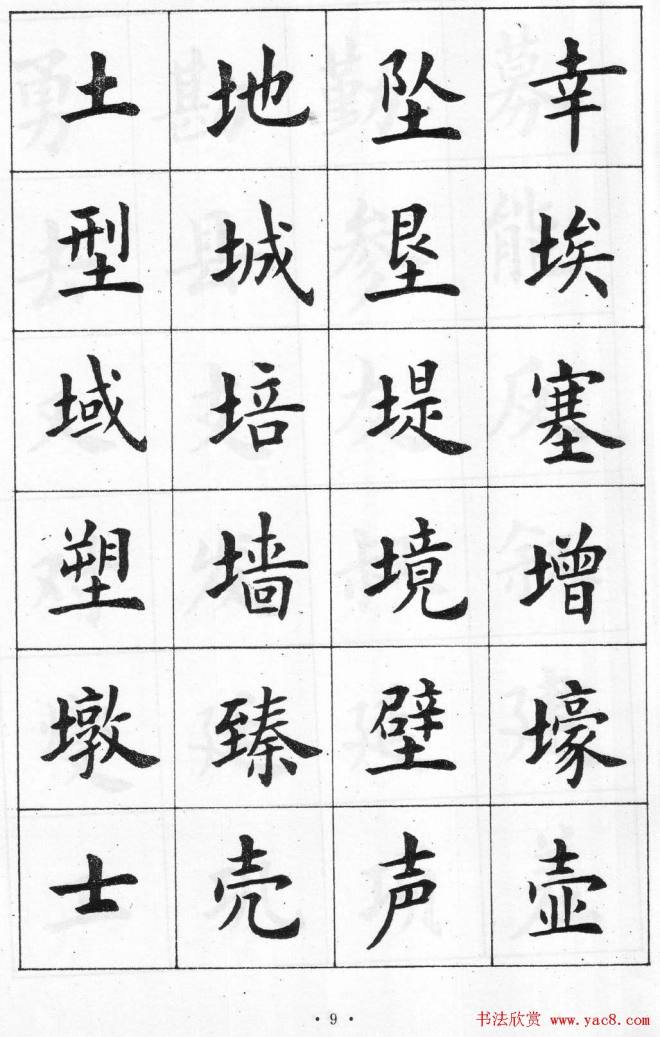 土地坠幸
型城垦埃
域培堤塞
塑墙境增
墩臻壁壕
士壳声壶
· 9 ·
书法欣赏 www.yac8.com